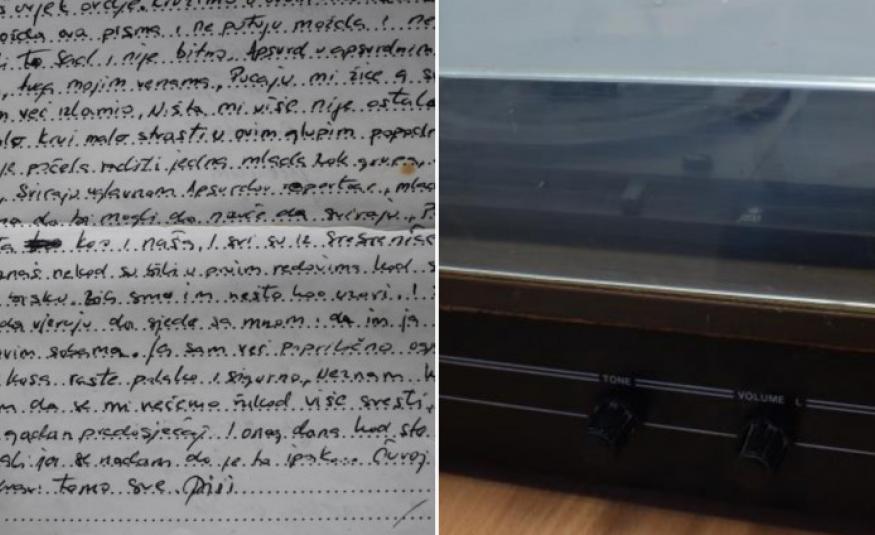 ova pisma i ne putuju možda i ne
to sad i nije bitno. Apsurd u apsurdnim
mojim venama, Pucaju mi žice a s
već izlomio, Ništa mi više nije ostalo
krvi malo strasti u ovim glupim popodn
je počela raditi jedna mlada rok grupa,
Sviraju uglavnom Apsurdov repertoar, mlad
da bi mogli da nauče da sviraju,
kao i naša, I svi su iz
nekad su bili u prvim redovima kad s
smo im nešto kao uzori. I
da vjeruju da sjede sa mnom i da im ja
ovim sobama. Ja sam već poprilično
kosa raste polako i sigurno, Neznam
da se mi nećemo nikad više sresti,
gadan predosjećaj I onog dana kad sto
ja se nadam da je to ipak... Čuvaj
tamo sve Piši
TONE
VOLUME L